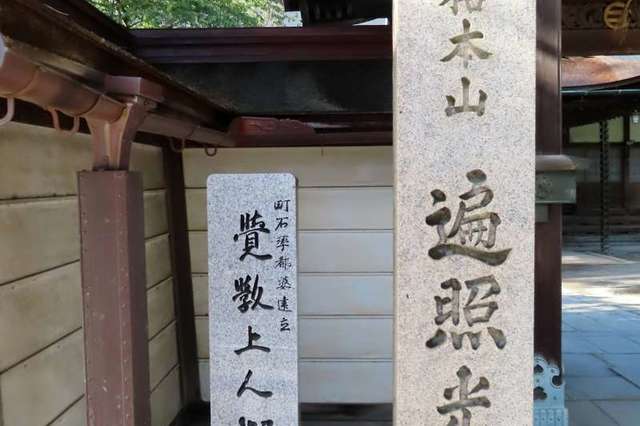 木山
遍照光
町石率都婆建立
覺斅上人